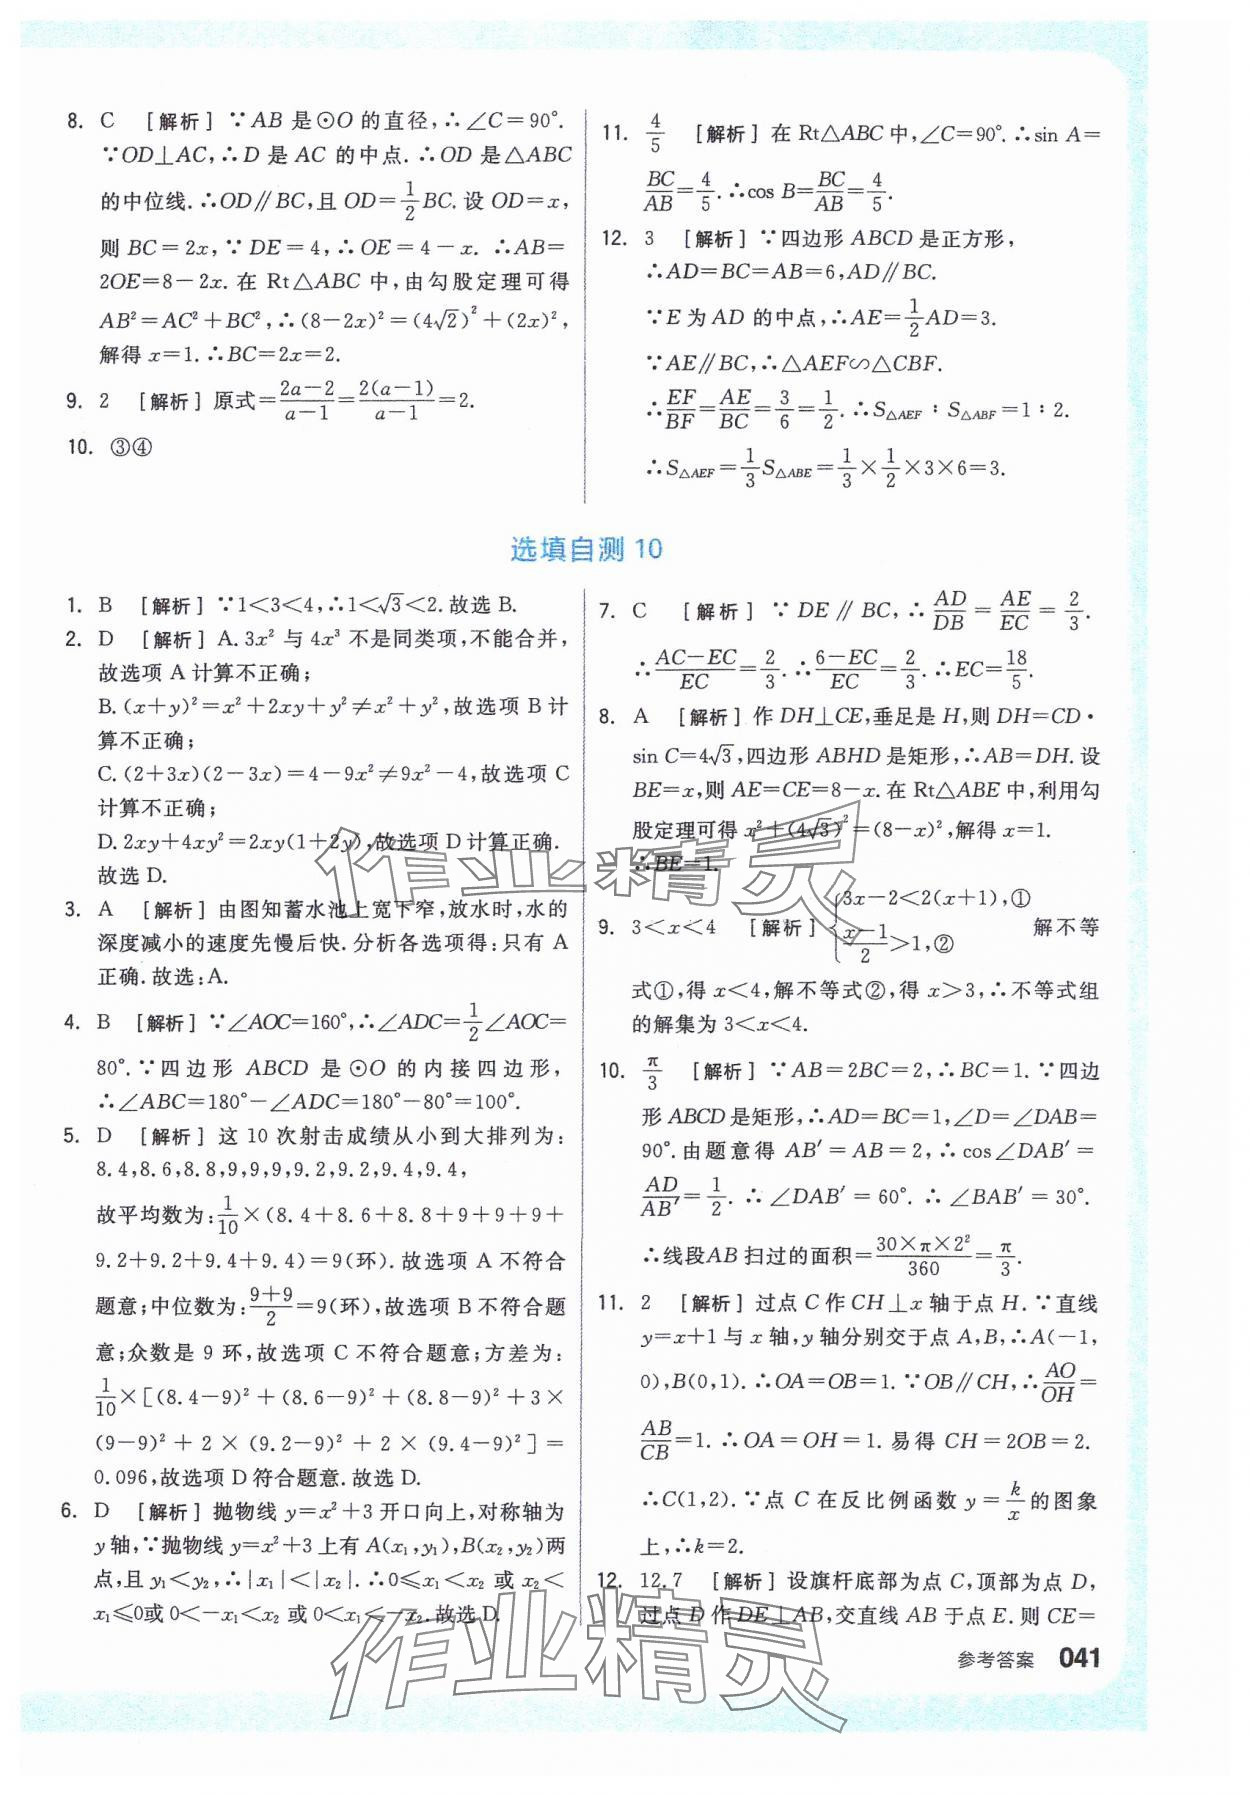 8. C [解析] ∵AB 是⊙O 的直径,∴∠C=90°.
∵OD⊥AC,∴D 是 AC 的中点.∴OD 是△ABC
的中位线.∴OD∥BC,且 OD=1/2BC.设 OD=x,
则 BC=2x,∵DE=4,∴OE=4-x.∴AB=
2OE=8-2x.在 Rt△ABC 中,由勾股定理可得
AB²=AC²+BC²,∴(8-2x)²=(4√2)²+(2x)²,
解得 x=1.∴BC=2x=2.
9. 2 [解析] 原式=(2a-2)/(a-1)=2(a-1)/(a-1)=2.
10. ③④
11. 4/5 [解析] 在 Rt△ABC 中,∠C=90°.∴sin A=
BC/AB=4/5.∴cos B=BC/AB=4/5.
12. 3 [解析] ∵四边形 ABCD 是正方形,
∴AD=BC=AB=6,AD∥BC.
∵E 为 AD 的中点,∴AE=1/2AD=3.
∵AE∥BC,∴△AEF∽△CBF.
∴EF/BF=AE/BC=3/6=1/2.∴S△AEF:S△ABF=1:2.
∴S△AEF=1/3S△ABE=1/3×1/2×3×6=3.
选填自测 10
1. B [解析] ∵1<3<4,∴1<√3<2.故选 B.
2. D [解析] A.3x² 与 4x³ 不是同类项,不能合并,
故选项 A 计算不正确;
B.(x+y)²=x²+2xy+y²≠x²+y²,故选项 B 计
算不正确;
C.(2+3x)(2-3x)=4-9x²≠9x²-4,故选项 C
计算不正确;
D.2xy+4xy²=2xy(1+2y),故选项 D 计算正确.
故选 D.
3. A [解析] 由图知蓄水池上宽下窄,放水时,水的
深度减小的速度先慢后快.分析各选项得:只有 A
正确.故选:A.
4. B [解析] ∵∠AOC=160°,∴∠ADC=1/2∠AOC=
80°.∵四边形 ABCD 是⊙O 的内接四边形,
∴∠ABC=180°-∠ADC=180°-80°=100°.
5. D [解析] 这 10 次射击成绩从小到大排列为:
8.4,8.6,8.8,9,9,9,9.2,9.2,9.4,9.4,
故平均数为:1/10×(8.4+8.6+8.8+9+9+9+
9.2+9.2+9.4+9.4)=9(环).故选项 A 不符合
题意;中位数为:(9+9)/2=9(环),故选项 B 不符合题
意;众数是 9 环,故选项 C 不符合题意;方差为:
1/10×[(8.4-9)²+(8.6-9)²+(8.8-9)²+3×
(9-9)²+2×(9.2-9)²+2×(9.4-9)²]=
0.096,故选项 D 符合题意.故选 D.
6. D [解析] 抛物线 y=x²+3 开口向上,对称轴为
y 轴,∵抛物线 y=x²+3 上有 A(x₁,y₁),B(x₂,y₂)两
点,且 y₁<y₂,∴|x₁|<|x₂|.∴0≤x₁<x₂ 或 x₂<
x₁≤0或 0<-x₁<x₂ 或 0<x₁<-x₂.故选 D.
7. C [解析] ∵DE∥BC,∴AD/DB=AE/EC=2/3.
∴(AC-EC)/EC=2/3.∴(6-EC)/EC=2/3.∴EC=18/5.
8. A [解析] 作 DH⊥CE,垂足是 H,则 DH=CD·
sin C=4√3,四边形 ABHD 是矩形,∴AB=DH.设
BE=x,则 AE=CE=8-x.在 Rt△ABE 中,利用勾
股定理可得 x²+(4√3)²=(8-x)²,解得 x=1.
∴BE=1.
9. 3<x<4 [解析] {3x-2<2(x+1),① (x-1)/2>1,② 解不等
式①,得 x<4,解不等式②,得 x>3,∴不等式组
的解集为 3<x<4.
10. π/3 [解析] ∵AB=2BC=2,∴BC=1.∵四边
形 ABCD 是矩形,∴AD=BC=1,∠D=∠DAB=
90°.由题意得 AB′=AB=2,∴cos∠DAB′=
AD/AB′=1/2.∴∠DAB′=60°.∴∠BAB′=30°.
∴线段AB 扫过的面积=(30×π×2²)/360=π/3.
11. 2 [解析] 过点 C 作 CH⊥x 轴于点 H.∵直线
y=x+1 与 x 轴,y 轴分别交于点 A,B,∴A(-1,
0),B(0,1).∴OA=OB=1.∵OB∥CH,∴AO/OH=
AB/CB=1.∴OA=OH=1.易得 CH=2OB=2.
∴C(1,2).∵点 C 在反比例函数 y=k/x的图象
上,∴k=2.
12. 12.7 [解析] 设旗杆底部为点 C,顶部为点 D,
过点 D 作 DE⊥AB,交直线 AB 于点 E.则 CE=
参考答案 041
作业精灵
作业精灵